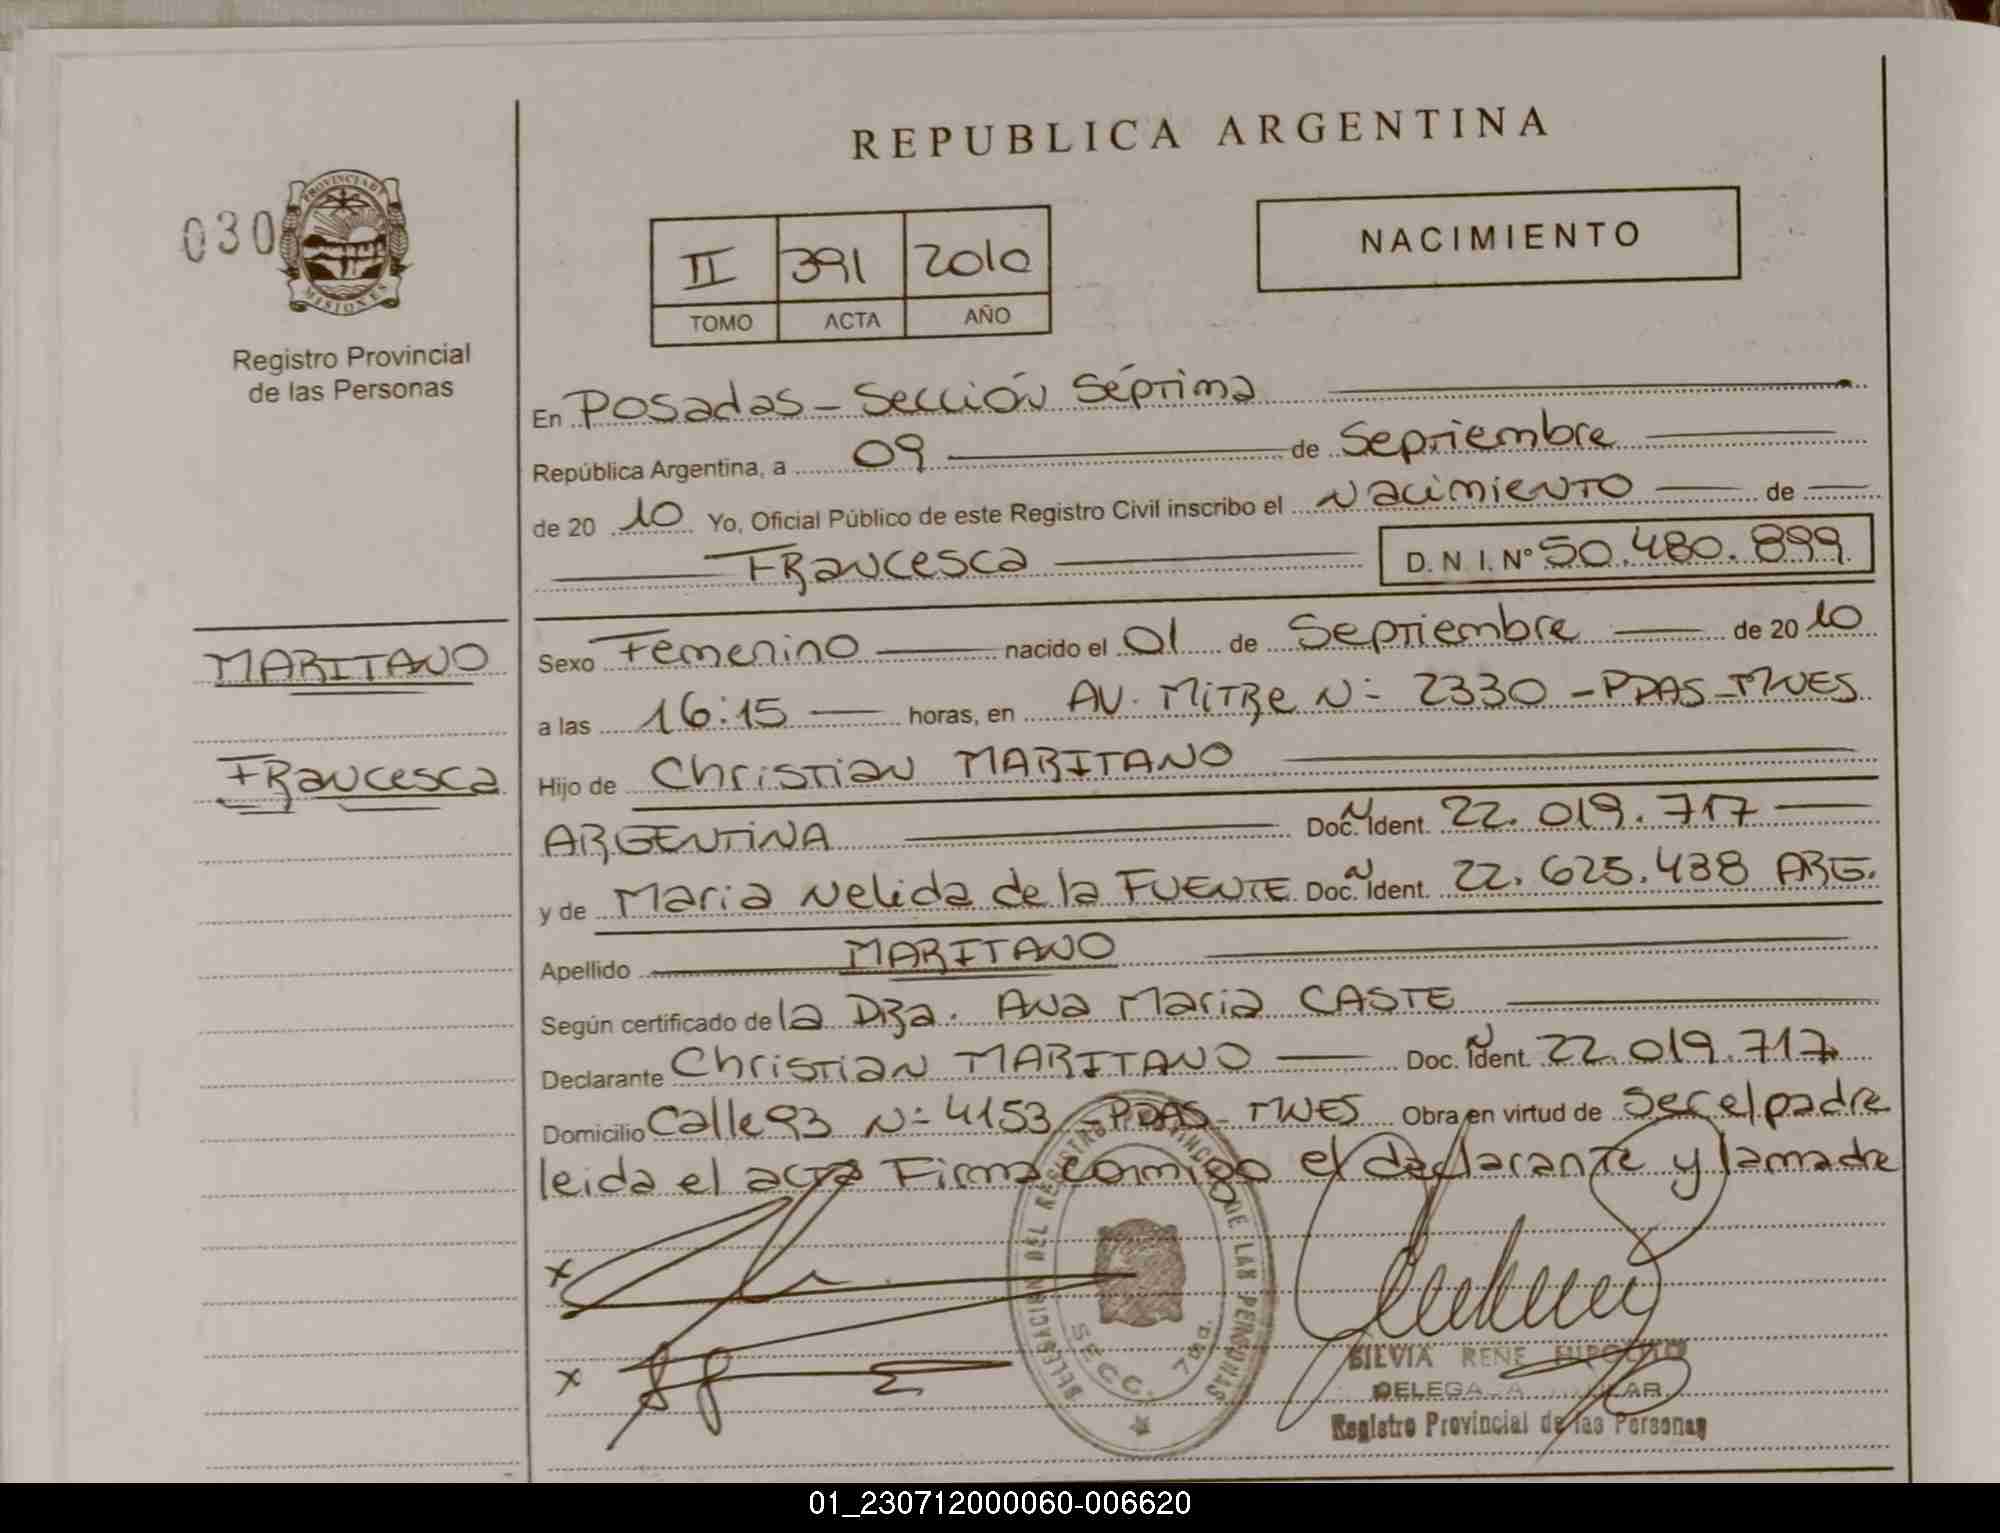 REPUBLICA ARGENTINA
030
PROVINCIA DE
MISIONES
Registro Provincial
de las Personas
II 391 2010
TOMO ACTA AÑO
NACIMIENTO
En Posadas - Sección Séptima
República Argentina, a 09 de Septiembre
de 20 10 Yo, Oficial Público de este Registro Civil inscribo el Nacimiento de
Francesca D.N.I.Nº 50.480.899
MARITANO
Francesca
Sexo Femenino nacido el 01 de Septiembre de 20 10
a las 16:15 horas, en AV. Mitre N= 2330 - PDAS - MNES
Hijo de Christian MARITANO
ARGENTINA Doc. Ident. 22.019.717
y de Maria Nelida de la FUENTE Doc. Ident. 22.625.438 ARG.
Apellido MARITANO
Según certificado de la Dra. Ana Maria CASTE
Declarante Christian MARITANO Doc. Ident. 22.019.717
Domicilio Calle 93 N= 4153 - PDAS - MNES Obra en virtud de ser el padre
leida el acta Firma conmigo el declarante y la madre
DELEGACION DEL REGISTRO PROVINCIAL DE LAS PERSONAS
SECC. 7ma.
x
x
SILVIA RENE HIPOLITO
DELEGADA TITULAR
Registro Provincial de las Personas
01_230712000060-006620